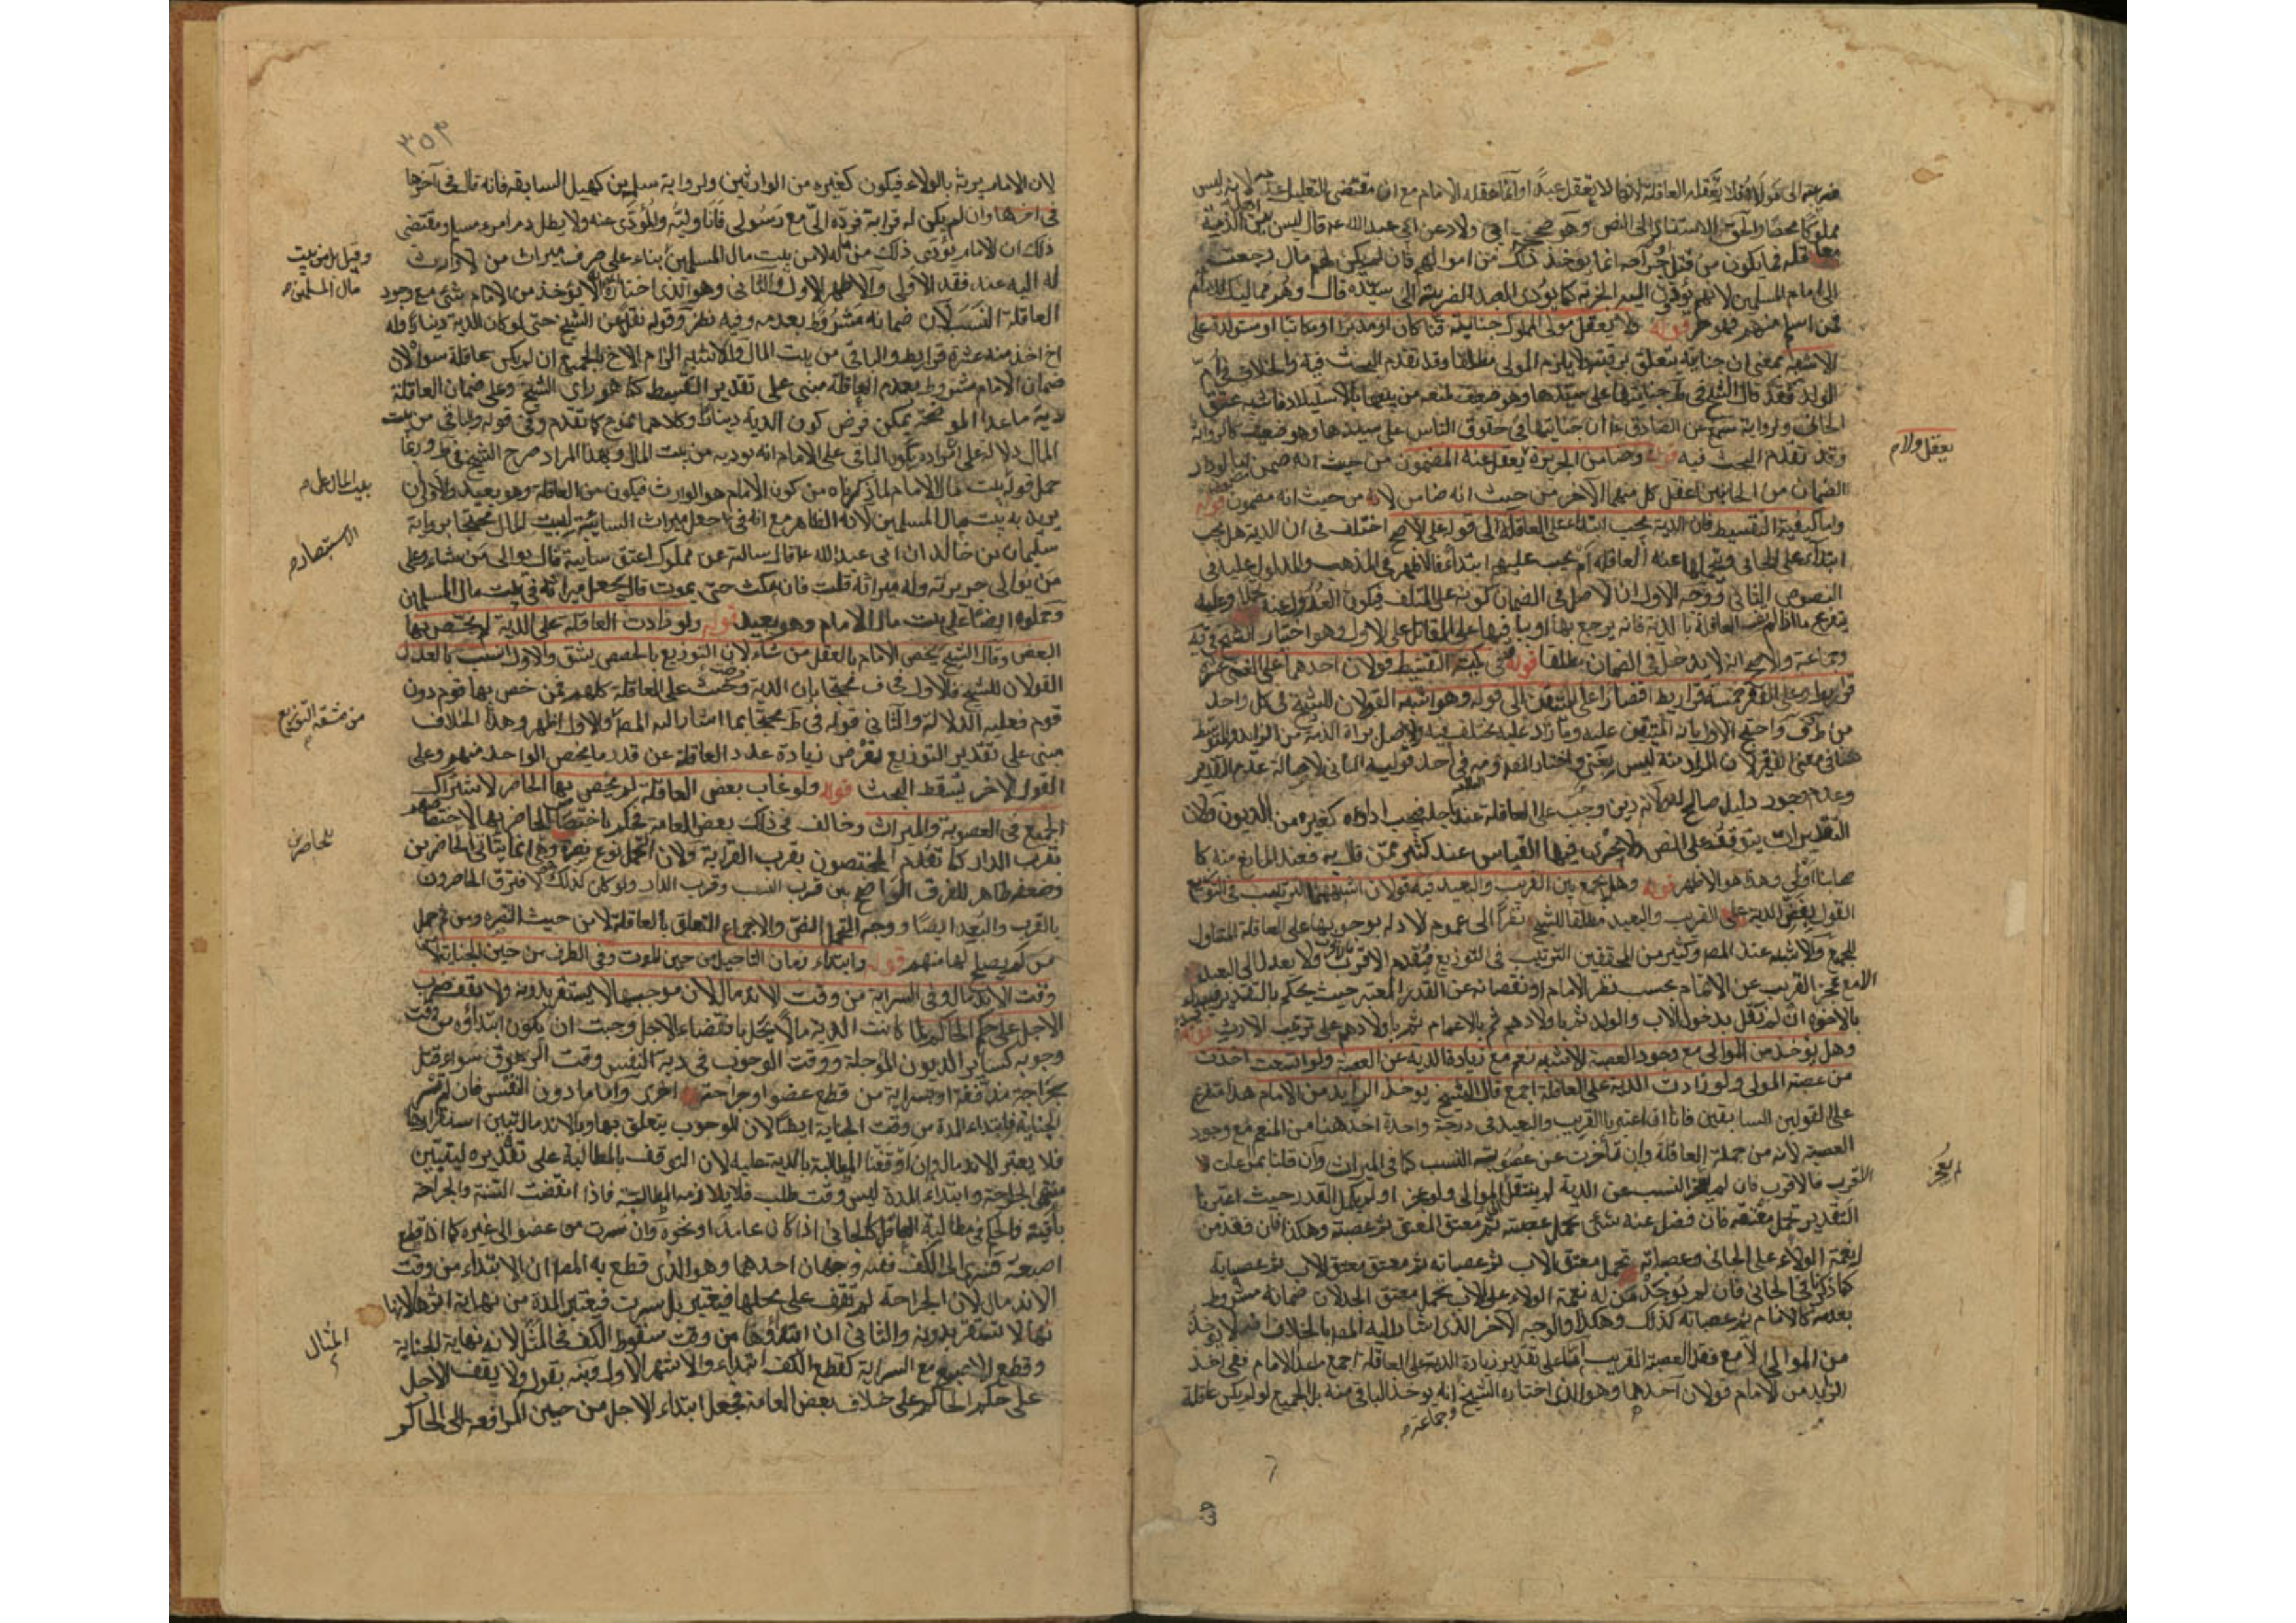 مملوكا محضا والحق الاستناد الى النص وهو صحيح ابي ولاد عن ابي عبد الله ع قال ليس بين اهل الذمة
معاقلة فيما يكون من قتل او جراحة انما يوخذ ذلك من اموالهم فان لم يكن لهم مال رجعت
الى امام المسلمين لانهم يؤدون اليه الجزية كما يؤدى العبد الضريبة الى سيده قال وهم مماليك للامام
فمن اسلم منهم فهو حر قوله ولا يعقل مولى المملوك جنايته قنا كان او مدبرا او مكاتبا او مستولدة على
الاشبه بمعنى ان جنايته يتعلق برقبته ولا يلزم المولى مطلقا وقد تقدم البحث فيه والخلاف في ام
الولد فقد قال الشيخ في ط جنايتها على سيدها وهو ضعيف لمنعه من بيعها بالاستيلاد فاشبه عتق
الجاني ولرواية مسمع عن الصادق ع ان جنايتها في حقوق الناس على سيدها وهو ضعيف كالرواية
وقد تقدم البحث فيه قوله وضامن الجريرة يعقل عنه المضمون من حيث انه ضمن
الضمان من الجانبين عقل كل منهما الآخر من حيث انه ضامن لا من حيث انه مضمون قوله
واما كيفية التقسيط فان الدية يجب ابتداء على العاقلة الى قوله على الاصح اختلف في ان الدية هل يجب
ابتداء على الجاني ويتحملها عنه العاقلة ام يجب عليهم ابتداء فالاظهر في المذهب والمدلول عليه في
النصوص الثاني ووجه الاول ان الاصل في الضمان كونه على المتلف فيكون العدول عنه تحملا وعليه
وجماعة والاصح انه لا يدخل في الضمان مطلقا قوله في كمية التقسيط قولان احدهما على الغني عشرة
قراريط وعلى الفقير خمسة قراريط اقتصارا على المتفق الى قوله وهو اشبه القولان للشيخ في كل واحد
من طرف واحتج الاول بانه المتيقن عليه وما زاد عليه مختلف فيه والاصل براءة الذمة من الزايد والمتوسط
هنا في معنى الفقير لان المراد منه ليس بغني واختار المص ومنه في احد قوليه الثاني لاصالة عدم التقدير
وعدم وجود دليل صالح له ولانه دين وجب على العاقلة عند اجله فيجب اداؤه كغيره من الديون ولان
التقديرات يتوقف على النص ولا يجرى فيها القياس عند كثير ممن قال به فعند المانع منه كا
صحابنا اولى وهذا هو الاظهر قوله وهل يجمع بين القريب والبعيد فيه قولان اشبههما الترتيب في التوزيع
القول بفض الدية على القريب والبعيد مطلقا للشيخ نظرا الى عموم الادلة بوجوبها على العاقلة المتناول
للجميع والاشبه عند المص وكثير من المحققين الترتيب في التوزيع فيقدم الاقرب ولا يعدل الى البعيد
الا مع عجز القريب عن الاتمام بحسب نظر الامام او نقصانه عن القدر المعتبر حيث يحكم بالتقدير
بالاخوة ان لم نقل بدخول الاب والولد ثم باولادهم ثم بالاعمام ثم باولادهم على ترتيب الارث قوله
وهل يؤخذ من الموالى مع وجود العصبة الاشبه نعم مع زيادة الدية عن العصبة ولو اتسعت اخذت
من عصبة المولى ولو زادت الدية على العاقلة اجمع قال الشيخ يوخذ الزايد من الامام هذا متفرع
على القولين السابقين فانا ان اعتبرنا القريب والبعيد في درجة واحدة اخذ هنا من المنعم مع وجود
العصبة لانه من جملة العاقلة وان تاخرت عن عصوبته النسب كما في الميراث وان قلنا بمراعات
الاقرب فالاقرب فان لم النسب عن الدية لم ينتقل الى الموالى ولو عجز او لم يكمل القدر حيث اعتبرنا
التقدير تحمل معتقه فان فضل عنه شئ تحمل عصبته ثم معتق المعتق ثم عصبته وهكذا فان فقد من
له نعمة الولاء على الجاني وعصباته تحمل معتق الاب ثم عصباته ثم معتق معتق الاب ثم عصباته
كما ذكرنا في الجاني فان لم يوجد من له نعمة الولاء على الاب تحمل معتق الجد لان ضمانه مشروط
بعدمه كالامام ثم عصباته كذلك وهكذا والوجه الآخر الذي اشار اليه المص بالخلاف
من الموالى الا مع فقد العصبة القريب اما على تقدير زيادة الدية على العاقلة اجمع ما عدا الامام ففي اخذ
الزايد من الامام قولان احدهما وهو الذي اختاره الشيخ وجماعة انه يوخذ الباقي منه بل الجميع لو لم يكن عاقلة
يعقل ولاء
لم يعجز
٣٥٣
لان الامام يرثه بالولاء فيكون كغيره من الوارثين ولرواية سلمة بن كهيل السابقة فانه قال في آخرها
في اخرها وان لم يكن له قرابة فرده الى مع رسولي فانا وليه والمؤدى عنه ولا يطل دم امرء مسلم ومقتضى
ذلك ان الامام يؤدى ذلك من ماله لا من بيت مال المسلمين بناء على صرف ميراث من لا وارث
له اليه عند فقد الاولى والاظهر الاول والثاني وهو الذي اختاره انه لا يؤخذ من الامام شئ مع وجود
العاقلة النسب لان ضمانه مشروط بعدمه وفيه نظر وقوله نقل عن الشيخ حتى لو كان الدية دينارا وله
اخ اخذ منه عشرة قراريط والباقي من بيت المال والاشبه الزام الاخ بالجميع ان لم يكن عاقلة سواه لان
ضمان الامام مشروط بعدم العاقلة مبنى على تقدير التقسيط كما هو راى الشيخ وعلى ضمان العاقلة
دية ما عدا الموضحة يمكن فرض كون الدية دينارا وكلاهما ممنوع كما تقدم وفي قوله والباقي من بيت
المال دلالة على ان مراده بكون الباقي على الامام انه يوديه من بيت المال وبهذا المراد صرح الشيخ في ط وربما
حمل قوله بيت مال الامام لما ذكرناه من كون الامام هو الوارث فيكون من العاقلة وهو بعيد والاولى ان
يريد به بيت مال المسلمين لانه الظاهر مع انه في جعل ميراث السائبة لبيت المال محتجا برواية
سليمان بن خالد ان ابي عبد الله ع قال سالته عن مملوك اعتق سايبة قال يوالى من شاء وعلى
من يوالى جريرته وله ميراثه قلت فان مكث حتى يموت قال يجعل ميراثه في بيت مال المسلمين
وحملوه ايضا على بيت مال الامام وهو بعيد قوله ولو زادت العاقلة على الدية لم يختص بها
البعض وقال الشيخ يخص الامام بالعقل من شاء لان التوزيع بالحصص يشق والاول انسب بالعدل
القولان للشيخ فالاول في ف محتجا بان الدية وجبت على العاقلة كلهم فمن خص بها قوم دون
قوم فعليه الدلالة والثاني قوله في ط محتجا بما اشار اليه المص والاول اظهر وهذا الخلاف
مبنى على تقدير التوزيع بفرض زيادة عدد العاقلة عن قدر ما يخص الواحد منهم وعلى
القول الآخر يسقط البحث قوله ولو غاب بعض العاقلة لم يختص بها الحاضر لاشتراك
الجميع في العصوبة والميراث وخالف في ذلك بعض العامة فحكم باختصاص الحاضر بها لاختصاصهم
بقرب الدار كما تقدم المختصون بقرب القرابة ولان التحمل نوع نصرة وهي انما يتاتى الحاضرين
وضعفه ظاهر للفرق الواضح بين قرب النسب وقرب الدار ولو كان كذلك لافترق الحاضرون
بالقرب والبعد ايضا ووجه التحمل النص والاجماع المتعلق بالعاقلة لا من حيث النصرة ومن ثم حمل
من لم يصلح لها منهم قوله وابتداء زمان التاجيل من حين الموت وفي الطرف من حين الجناية لا من
وقت الاندمال وفي السراية من وقت الاندمال لان موجبها لا يستقر بدونه ولا يقف ضرب
الاجل على حكم الحاكم لما كانت الدية مالا يحل بانقضاء الاجل وجبت ان يكون ابتداؤه من وقت
وجوبه كساير الديون المؤجلة ووقت الوجوب في دية النفس وقت الزهوق سواء قتل
بجراحة مذففة او بسراية من قطع عضو او جراحة اخرى واما ما دون النفس فان لم تسر
الجناية فابتداء المدة من وقت الجناية ايضا لان الوجوب يتعلق بها وبالاندمال يتبين استقرارها
فلا يعتبر الاندمال وان اوقفنا المطالبة بالدية عليه لان التوقف بالمطالبة على تقديره ليتبين
منتهى الجراحة وابتداء المدة ليس وقت طلب فلا يلازمه المطالبة فاذا انقضت السنة والجراحة
باقية فالحكم في مطالبة العاقلة كالجاني اذا كان عامدا او نحوه وان سرت من عضو الى غيره كما اذا قطع
اصبعه فسرى الى الكف ففيه وجهان احدهما وهو الذي قطع به المص ان الابتداء من وقت
الاندمال لان الجراحة لم تقف على محلها فيعتبر بل سرت فيعتبر المدة من نهاية اثرها لانها
نها لا تستقر بدونه والثاني ان ابتداؤها من وقت سقوط الكف في المثال لانه نهاية الجناية
وقطع الاصبع مع السراية كقطع الكف ابتداء والاشهر الاول ونبه بقوله ولا يقف الاجل
على حكم الحاكم على خلاف بعض العامة فجعل ابتداء الاجل من حين المرافعة الى الحاكم
وقيل بل من بيت
مال المسلمين
بيت المال على
الاستبصار
من مشقة التوزيع
للحاضرين
المثال